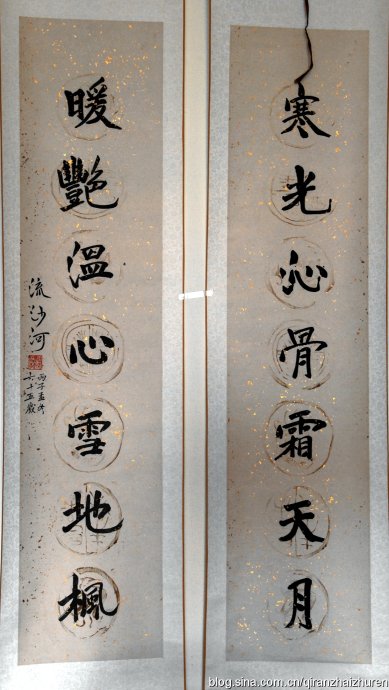 寒光沁骨霜天月
暖艷温心雪地楓
流沙河
丙子孟冬
六十五歲
blog.sina.com.cn/qiranzhaizhuren